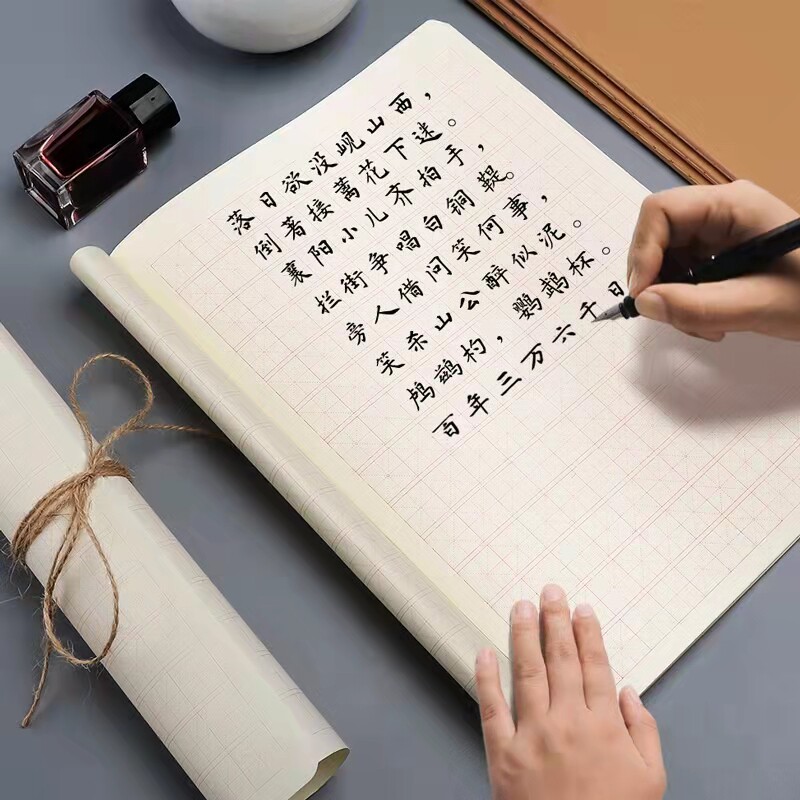 落日欲没岘山西，
倒著接蓠花下迷。
襄阳小儿齐拍手，
拦街争唱白铜鞮。
旁人借问笑何事，
笑杀山公醉似泥。
鸬鹚杓，鹦鹉杯。
百年三万六千日